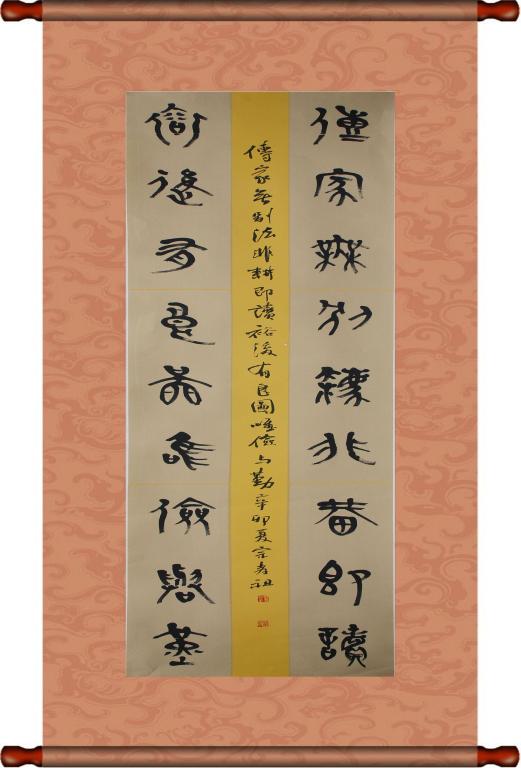 傳家無別法非耕即讀
傳家無別法非耕即讀裕後有良圖唯儉与勤辛卯夏宗孝祖
裕後有良圖唯儉與勤